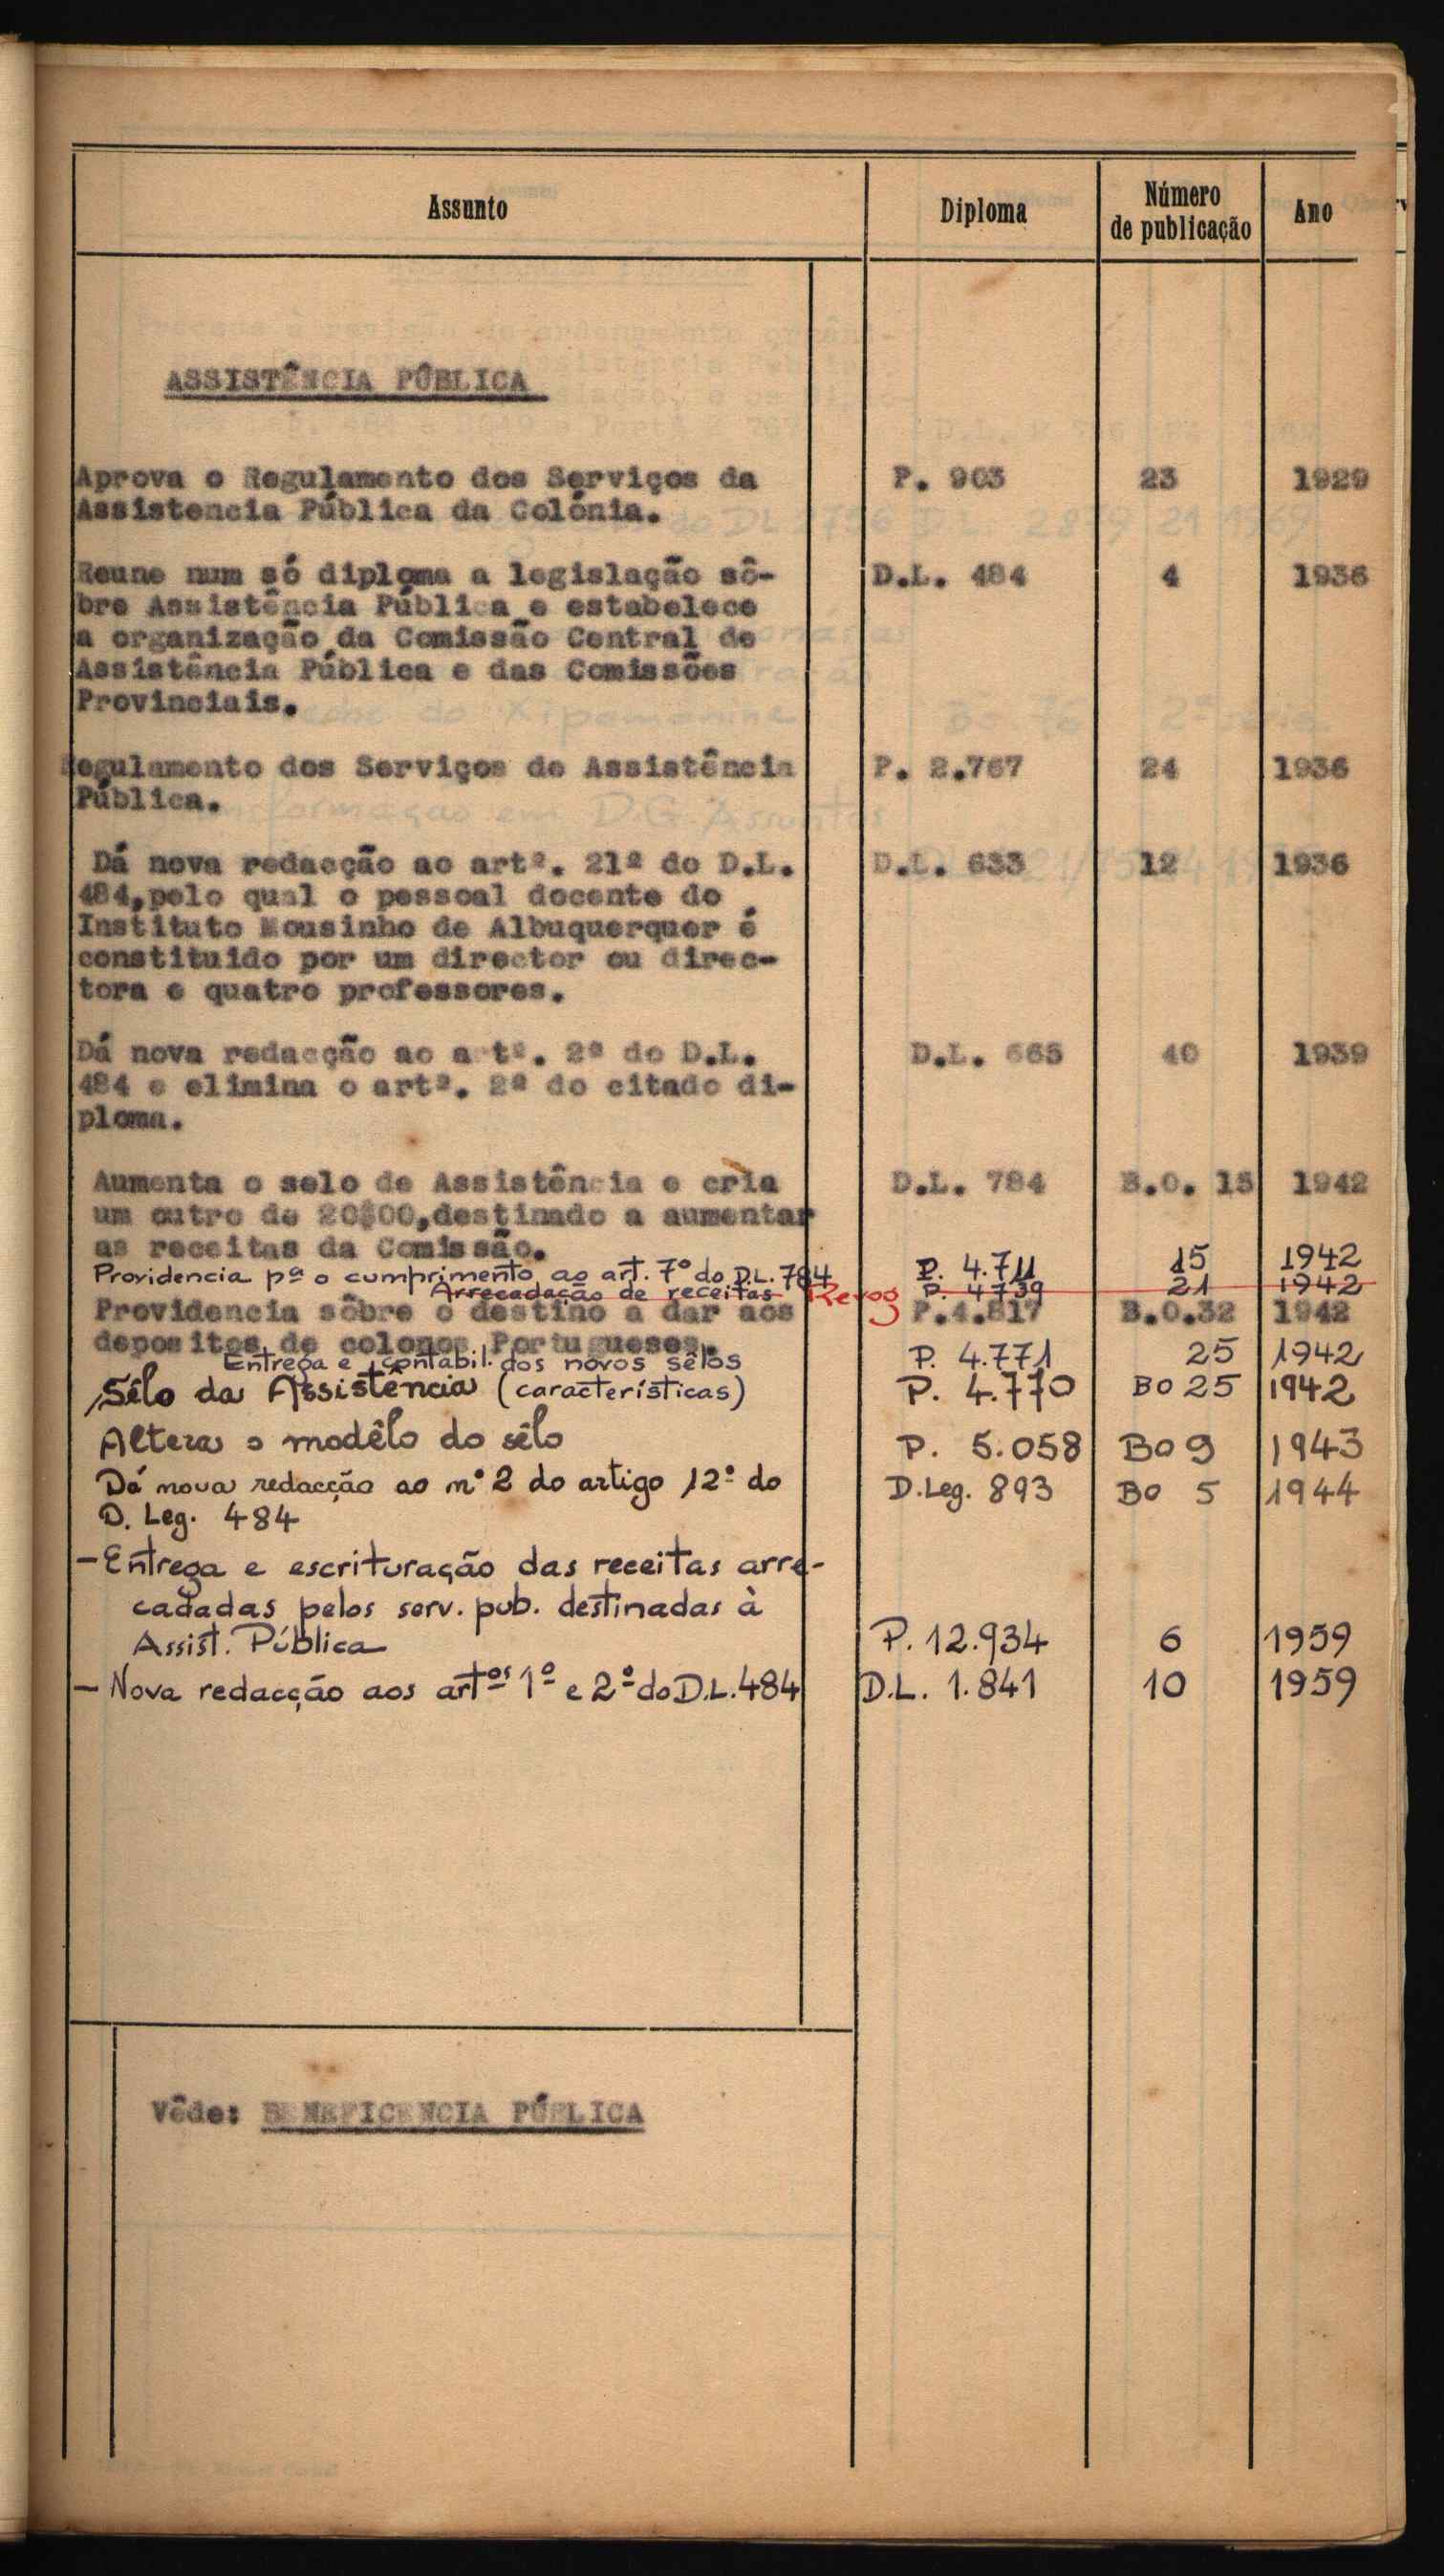 Assunto Diploma Número de publicação Ano
ASSISTÊNCIA PÚBLICA
Aprova o Regulamento dos Serviços da P. 903 23 1929
Assistencia Pública da Colónia.
Reune num só diploma a legislação sô- D.L. 484 4 1936
bre Assistência Pública e estabelece
a organização da Comissão Central de
Assistência Pública e das Comissões
Provinciais.
Regulamento dos Serviços de Assistência P. 2.767 24 1936
Pública.
Dá nova redacção ao artº. 21º do D.L. D.L. 633 12 1936
484,pelo qual o pessoal docente do
Instituto Mousinho de Albuquerquer é
constituido por um director ou direc-
tora e quatro professores.
Dá nova redacção ao artº. 2º do D.L. D.L. 665 40 1939
484 e elimina o artº. 2º do citado di-
ploma.
Aumenta o selo de Assistência e cria D.L. 784 B.O. 15 1942
um outro de 20$00,destinado a aumentar
as receitas da Comissão.
Providencia pª o cumprimento ao art. 7º do D.L. 784 P. 4.711 15 1942
Arrecadação de receitas Revog P. 4739 21 1942
Providencia sôbre o destino a dar aos P.4.817 B.O.32 1942
depositos de colonos Portugueses.
Entrega e contabil. dos novos sêlos P. 4.771 25 1942
Sêlo da Assistência (características) P. 4.770 BO 25 1942
Altera o modêlo do sêlo P. 5.058 BO 9 1943
Dá nova redacção ao nº 2 do artigo 12º do D.Leg. 893 BO 5 1944
D. Leg. 484
- Entrega e escrituração das receitas arre-
cadadas pelos serv. pub. destinadas à
Assist. Pública P. 12.934 6 1959
- Nova redacção aos artºs 1º e 2º do D.L. 484 D.L. 1.841 10 1959
Vêde: BENEFICENCIA PÚBLICA